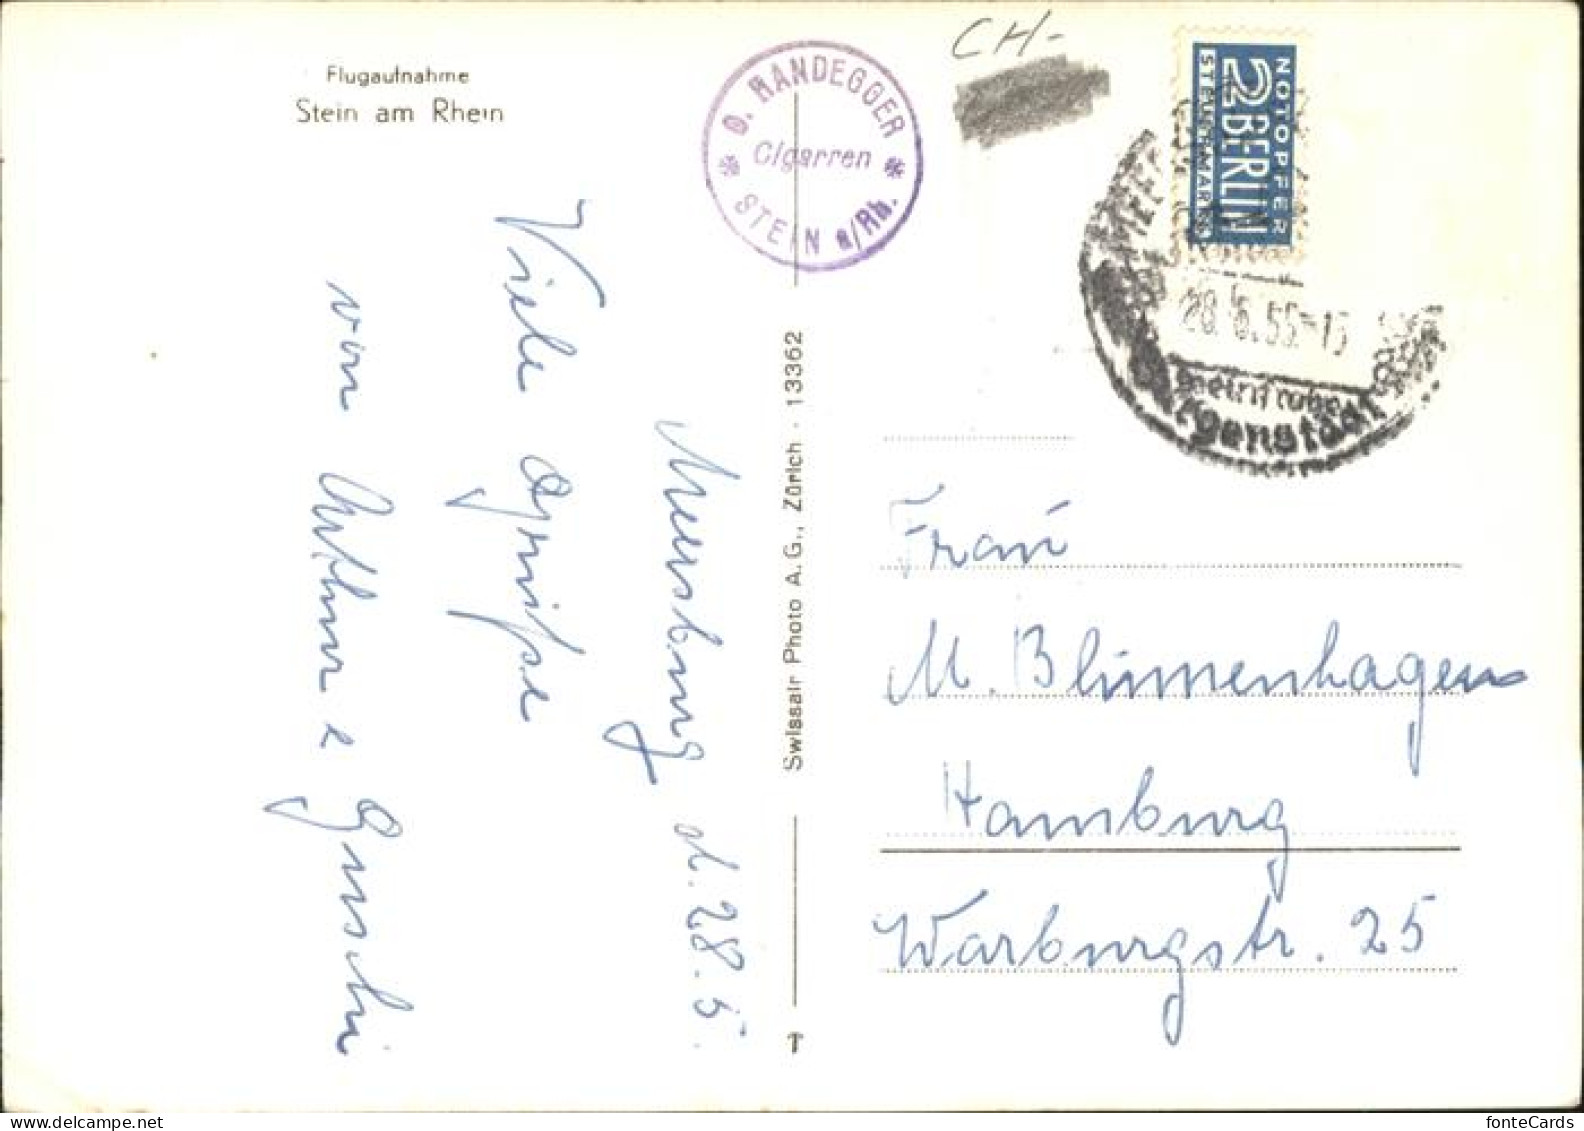 Flugaufnahme
Stein am Rhein
O. RANDEGGER
Cigarren
STEIN a/Rh.
CH-
NOTOPFER
2 BERLIN
STEUERMARKE
MEER
28.5.55-15
Meersburg d. 28.5.
Viele Grüße
von Arthur & Guschi
Swissair Photo A.G., Zürich · 13362
Frau
M. Blumenhagen
Hamburg
Warburgstr. 25
fonteCards